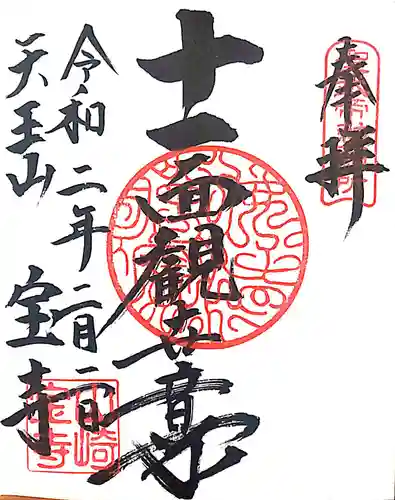 奉拝
十一面観世音
令和二年二月一日
天王山
宝寺
山崎
宝寺